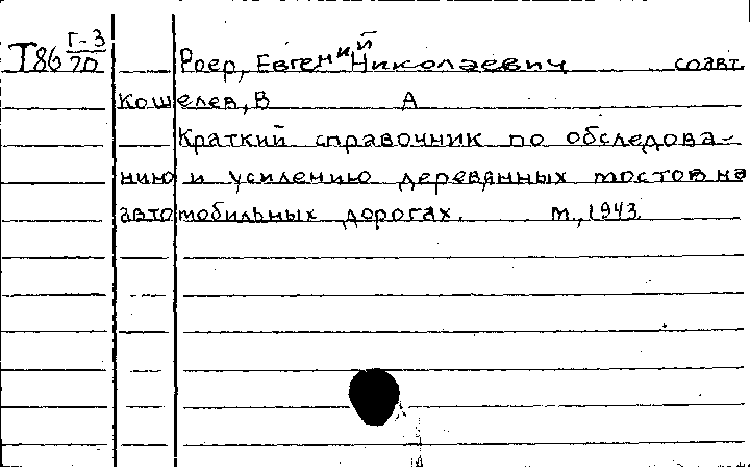 Т86 Г-3/70 Роер, Евгений Николаевич соавт.
Кошелев, В А
Краткий справочник по обследова-
нию и усилению деревянных мостов на
автомобильных дорогах. М., 1943.